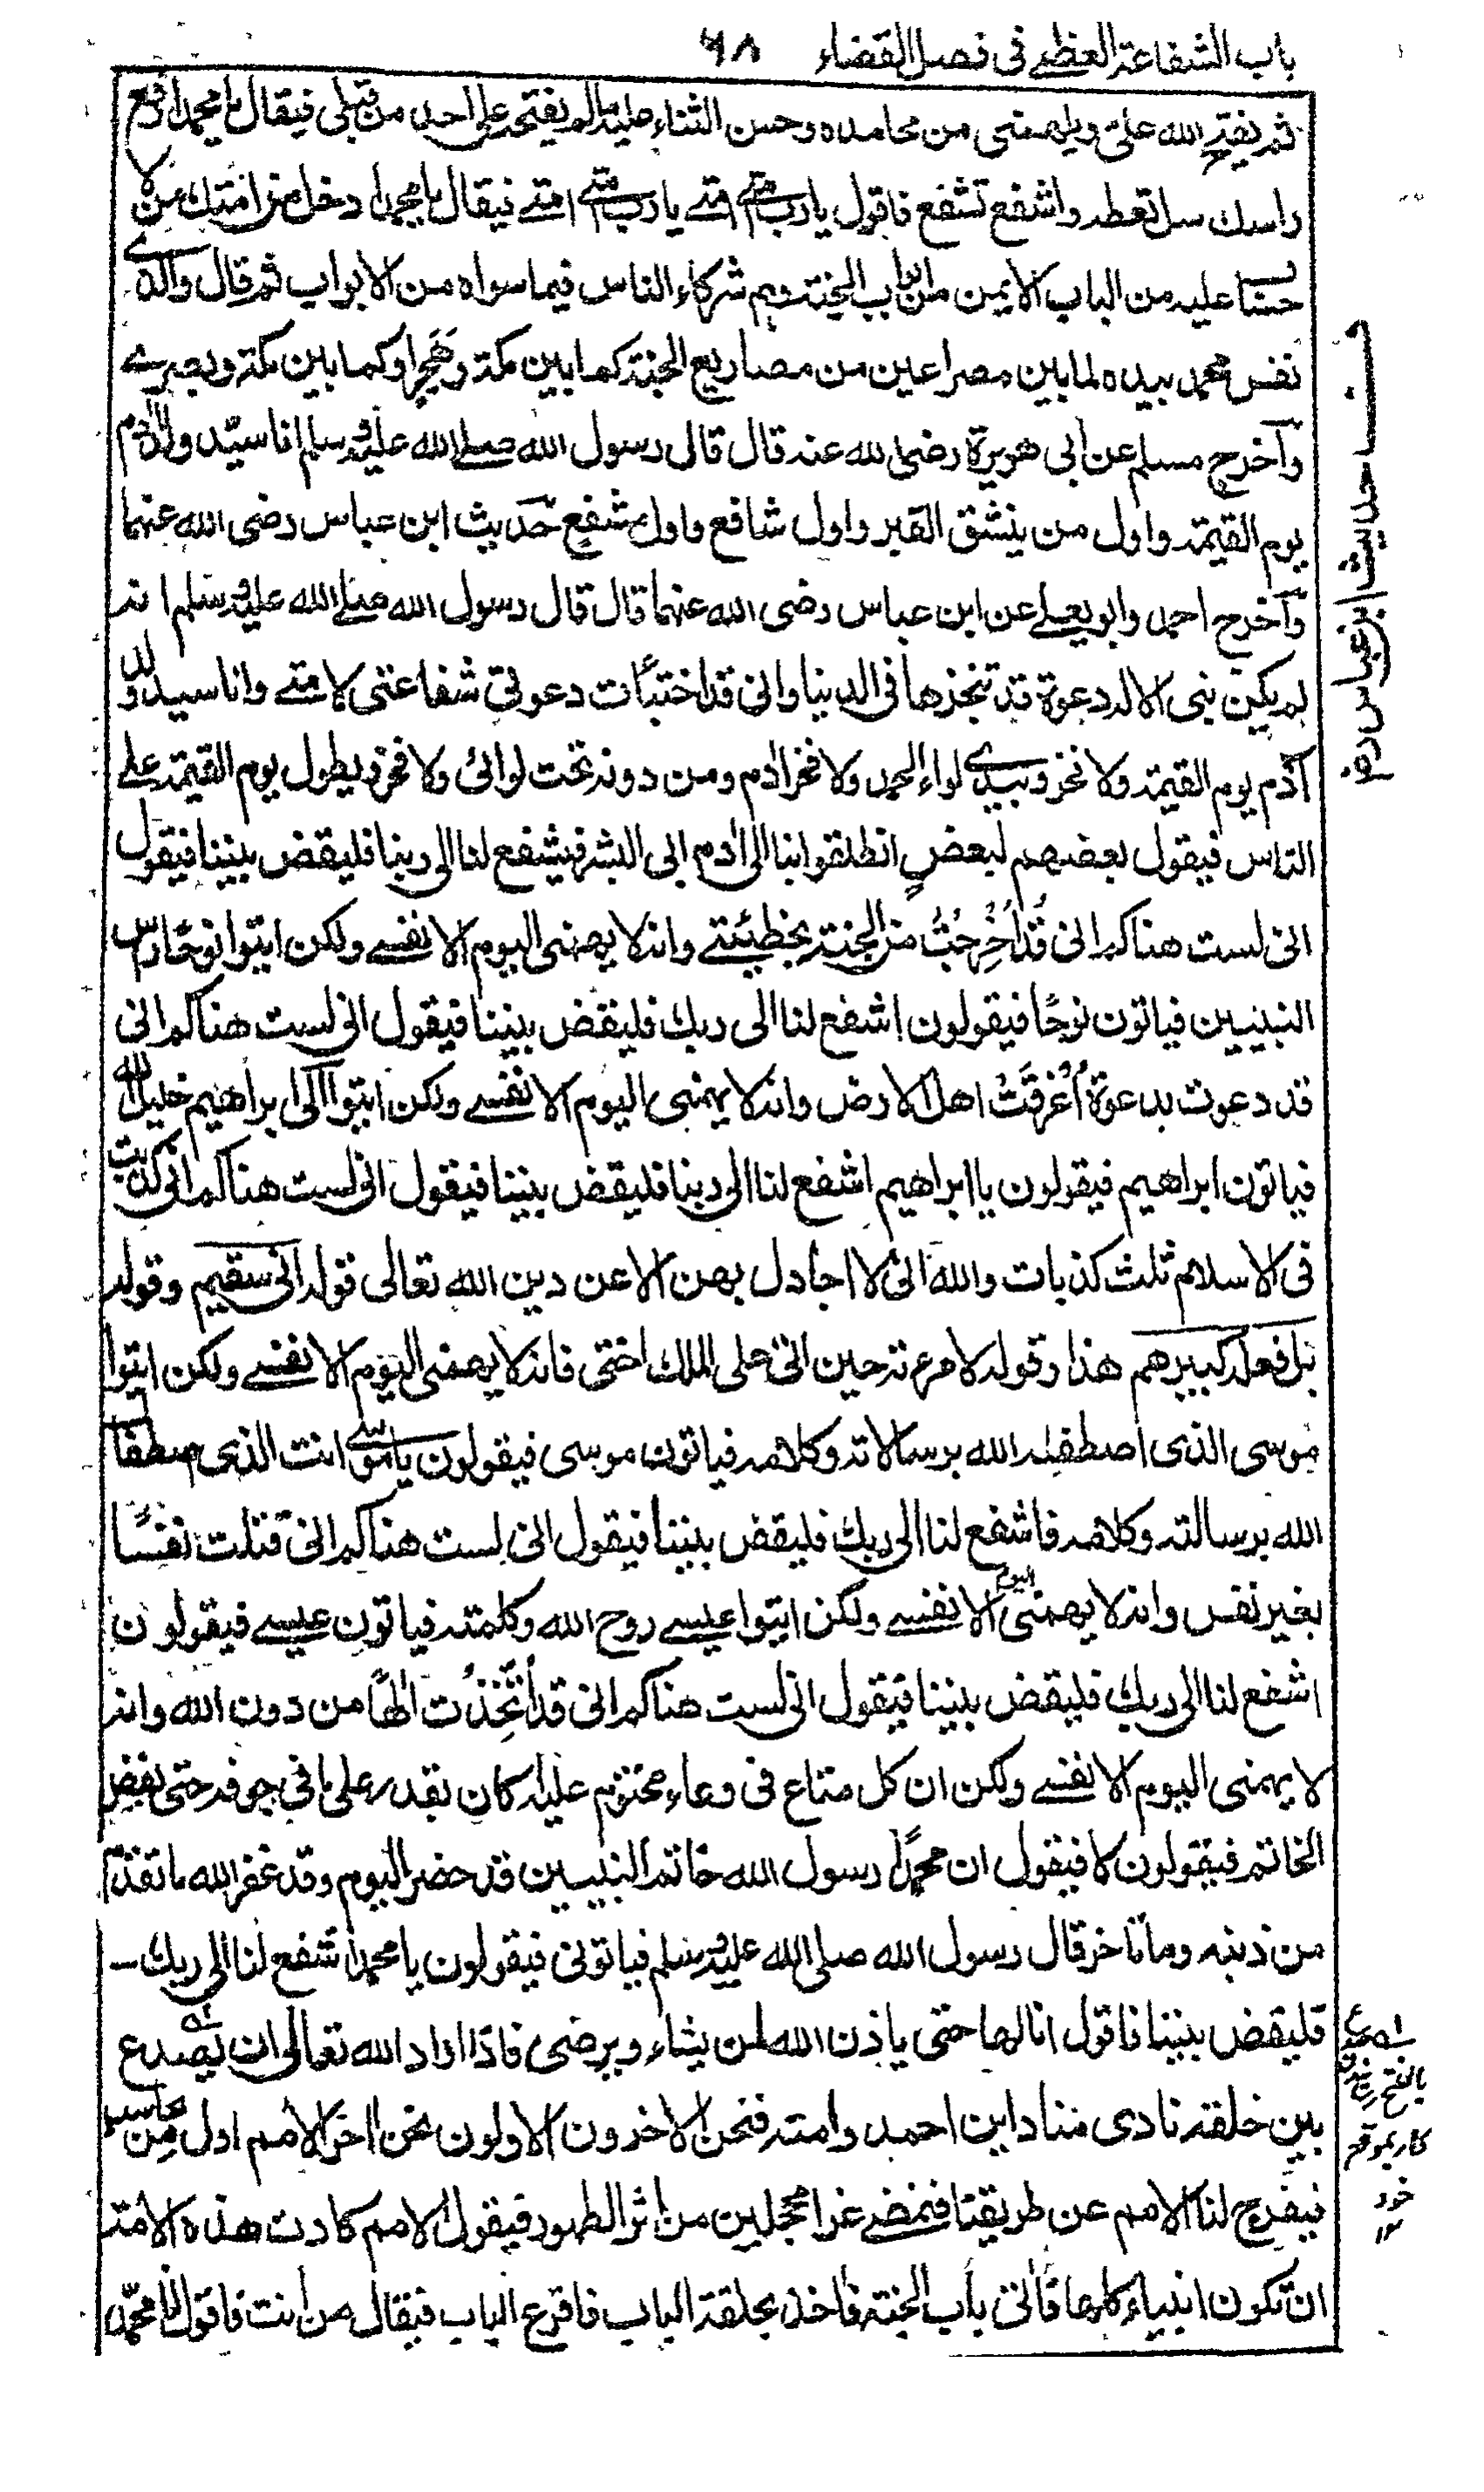 باب الشفاعة العظمے فی فصل القضاء ۶۸
ثم یفتح الله علیّ ویلهمنی من محامده وحسن الثناء علیه مالم یفتحه علی احد من قبلی فیقال یا محمد ارفع
راسك سل تعطه واشفع تشفع فاقول یا رب امتے امتے یا رب امتے امتے فیقال یا محمد ادخل من امتك من لا
حساب علیه من الباب الایمن من ابواب الجنة وهم شركاء الناس فیما سواه من الابواب ثم قال والذے
نفس محمد بیده لما بین مصراعین من مصاریع الجنة كما بین مكة وهَجَر او كما بین مكة وبصرے
وآخرج مسلم عن ابی هریرة رضی الله عنه قال قال رسول الله صلے الله علیه وسلم انا سیّد ولد اٰدم
یوم القیٰمة واول من ینشق القبر واول شافع واول مشفع حدیث ابن عباس رضی الله عنهما
وآخرج احمد وابو یعلے عن ابن عباس رضی الله عنهما قال قال رسول الله صلے الله علیه وسلم انه
لم یكن نبی الا له دعوة قد تنجزها فی الدنیا وانی قد اختبأت دعوتی شفاعتی لامتے وانا سید ولد
آدم یوم القیٰمة ولا فخر وبیدے لواء الحمد ولا فخر اٰدم ومن دونه تحت لوائی ولا فخر ویطول یوم القیٰمة علے
الناس فیقول بعضهم لبعضٍ انطلقوا بنا الی اٰدم ابی البشر فیشفع لنا الی ربنا فلیقض بیننا فیقول
انی لست هناكم انی قَدْ اُخْرِجْتُ من الجنة بخطیئتے وانه لا یهمنی الیوم الا نفسے ولكن ایتوا نوحًا راس
النبیین فیاتون نوحًا فیقولون اشفع لنا الی ربك فلیقض بیننا فیقول انی لست هناكم انی
قد دعوت بدعوة اُغْرِقَتْ اهل الارض وانه لا یهمنی الیوم الا نفسے ولكن ایتوا الی ابراهیم خلیل الله
فیاتون ابراهیم فیقولون یا ابراهیم اشفع لنا الی ربنا فلیقض بیننا فیقول انی لست هناكم انی كذبت
فی الاسلام ثلث كذبات والله انی لا اجادل بهن الا عن دین الله تعالی قوله انی سقیم وقوله
بل فعله كبیرهم هذا وقوله لامرءته حین اتی علی الملك اختی فانه لا یهمنی الیوم الا نفسے ولكن ایتوا
موسی الذی اصطفٰه الله برسالاته وكلامه فیاتون موسی فیقولون یا موسے انت الذی اصطفاك
الله برسالته وكلامه فاشفع لنا الی ربك فلیقض بیننا فیقول انی لست هناكم انی قتلت نفسًا
بغیر نفس وانه لا یهمنی الیوم الا نفسے ولكن ایتوا عیسے روح الله وكلمته فیاتون عیسے فیقولون
اشفع لنا الی ربك فلیقض بیننا فیقول انی لست هناكم انی قد اتُّخِذْت الٰهًا من دون الله وانه
لا یهمنی الیوم الا نفسے ولكن ان كل متاع فی وعاء مختوم علیه اكان یقدر علی ما فی جوفه حتی یفض
الخاتم فیقولون لا فیقول ان محمدًا رسول الله خاتم النبیین قد حضر الیوم وقد غفر الله ما تقدم
من ذنبه وما تاخر قال رسول الله صلی الله علیه وسلم فیاتونی فیقولون یا محمد اشفع لنا الی ربك
فلیقض بیننا فاقول انا لها حتی یاذن الله لمن یشاء ویرضی فاذا اراد الله تعالی ان یصدع
بین خلقه نادی مناد این احمد وامته فنحن الاخرون الاولون نحن اخر الامم اول من یحاسب
فیفرج لنا الامم عن طریقنا فنمضے غرا محجلین من اثر الطهور فیقول الامم كادت هذه الامة
ان تكون انبیاء كلها فاٰتی باب الجنة فاخذ بحلقة الباب فاقرع الباب فیقال من انت فاقول انا محمّد
حدیث ابن عباس رض
بالفتح
خود
۱۲